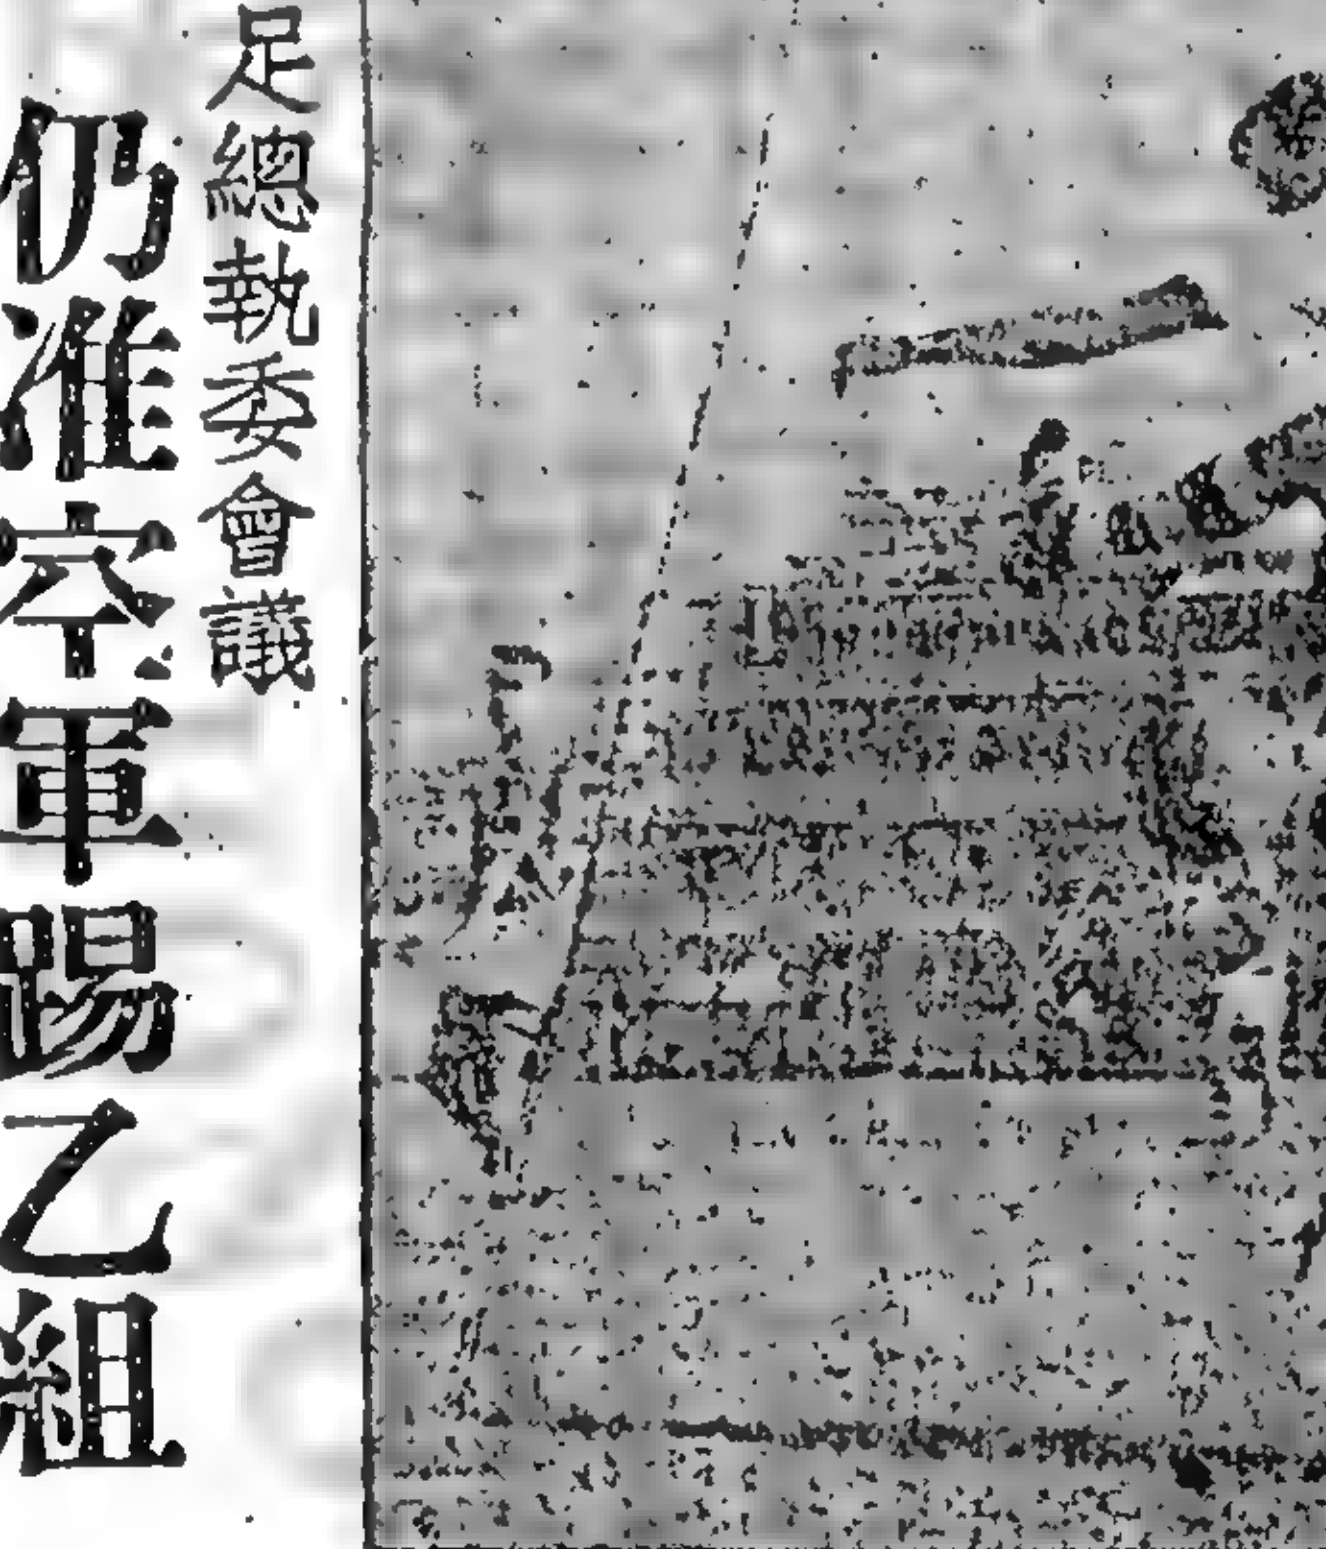 足總執委會議
仍准空軍踢乙組